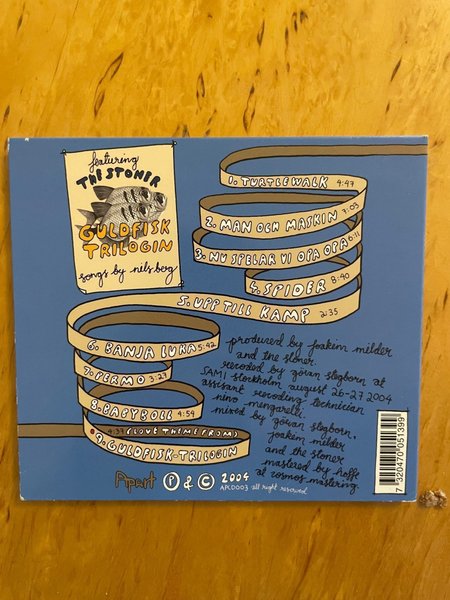 featuring
THE STONER
GULDFISK
TRILOGIN
songs by nils berg
1. TURTLEWALK 4:47
2. MAN OCH MASKIN 7:03
3. NU SPELAR VI OPA OPA 6:11
4. SPIDER 8:40
5. UPP TILL KAMP 2:35
6. BANJA LUKA 5:42
7. PERMO 3:27
8. BABYBOLL 4:59
4:37 (LOVE THEME FROM)
9. GULDFISK-TRILOGIN
produced by joakim milder
and the stoner.
recorded by göran stegborn at
SAMI stockholm august 26-27 2004
assisant recording technician
nino mengarelli.
mixed by göran stegborn,
joakim milder
and the stoner
mastered by hoffe
at cosmos mastering.
Apart Ⓟ & © 2004
APCD003 all right reserved
7 320470 051399